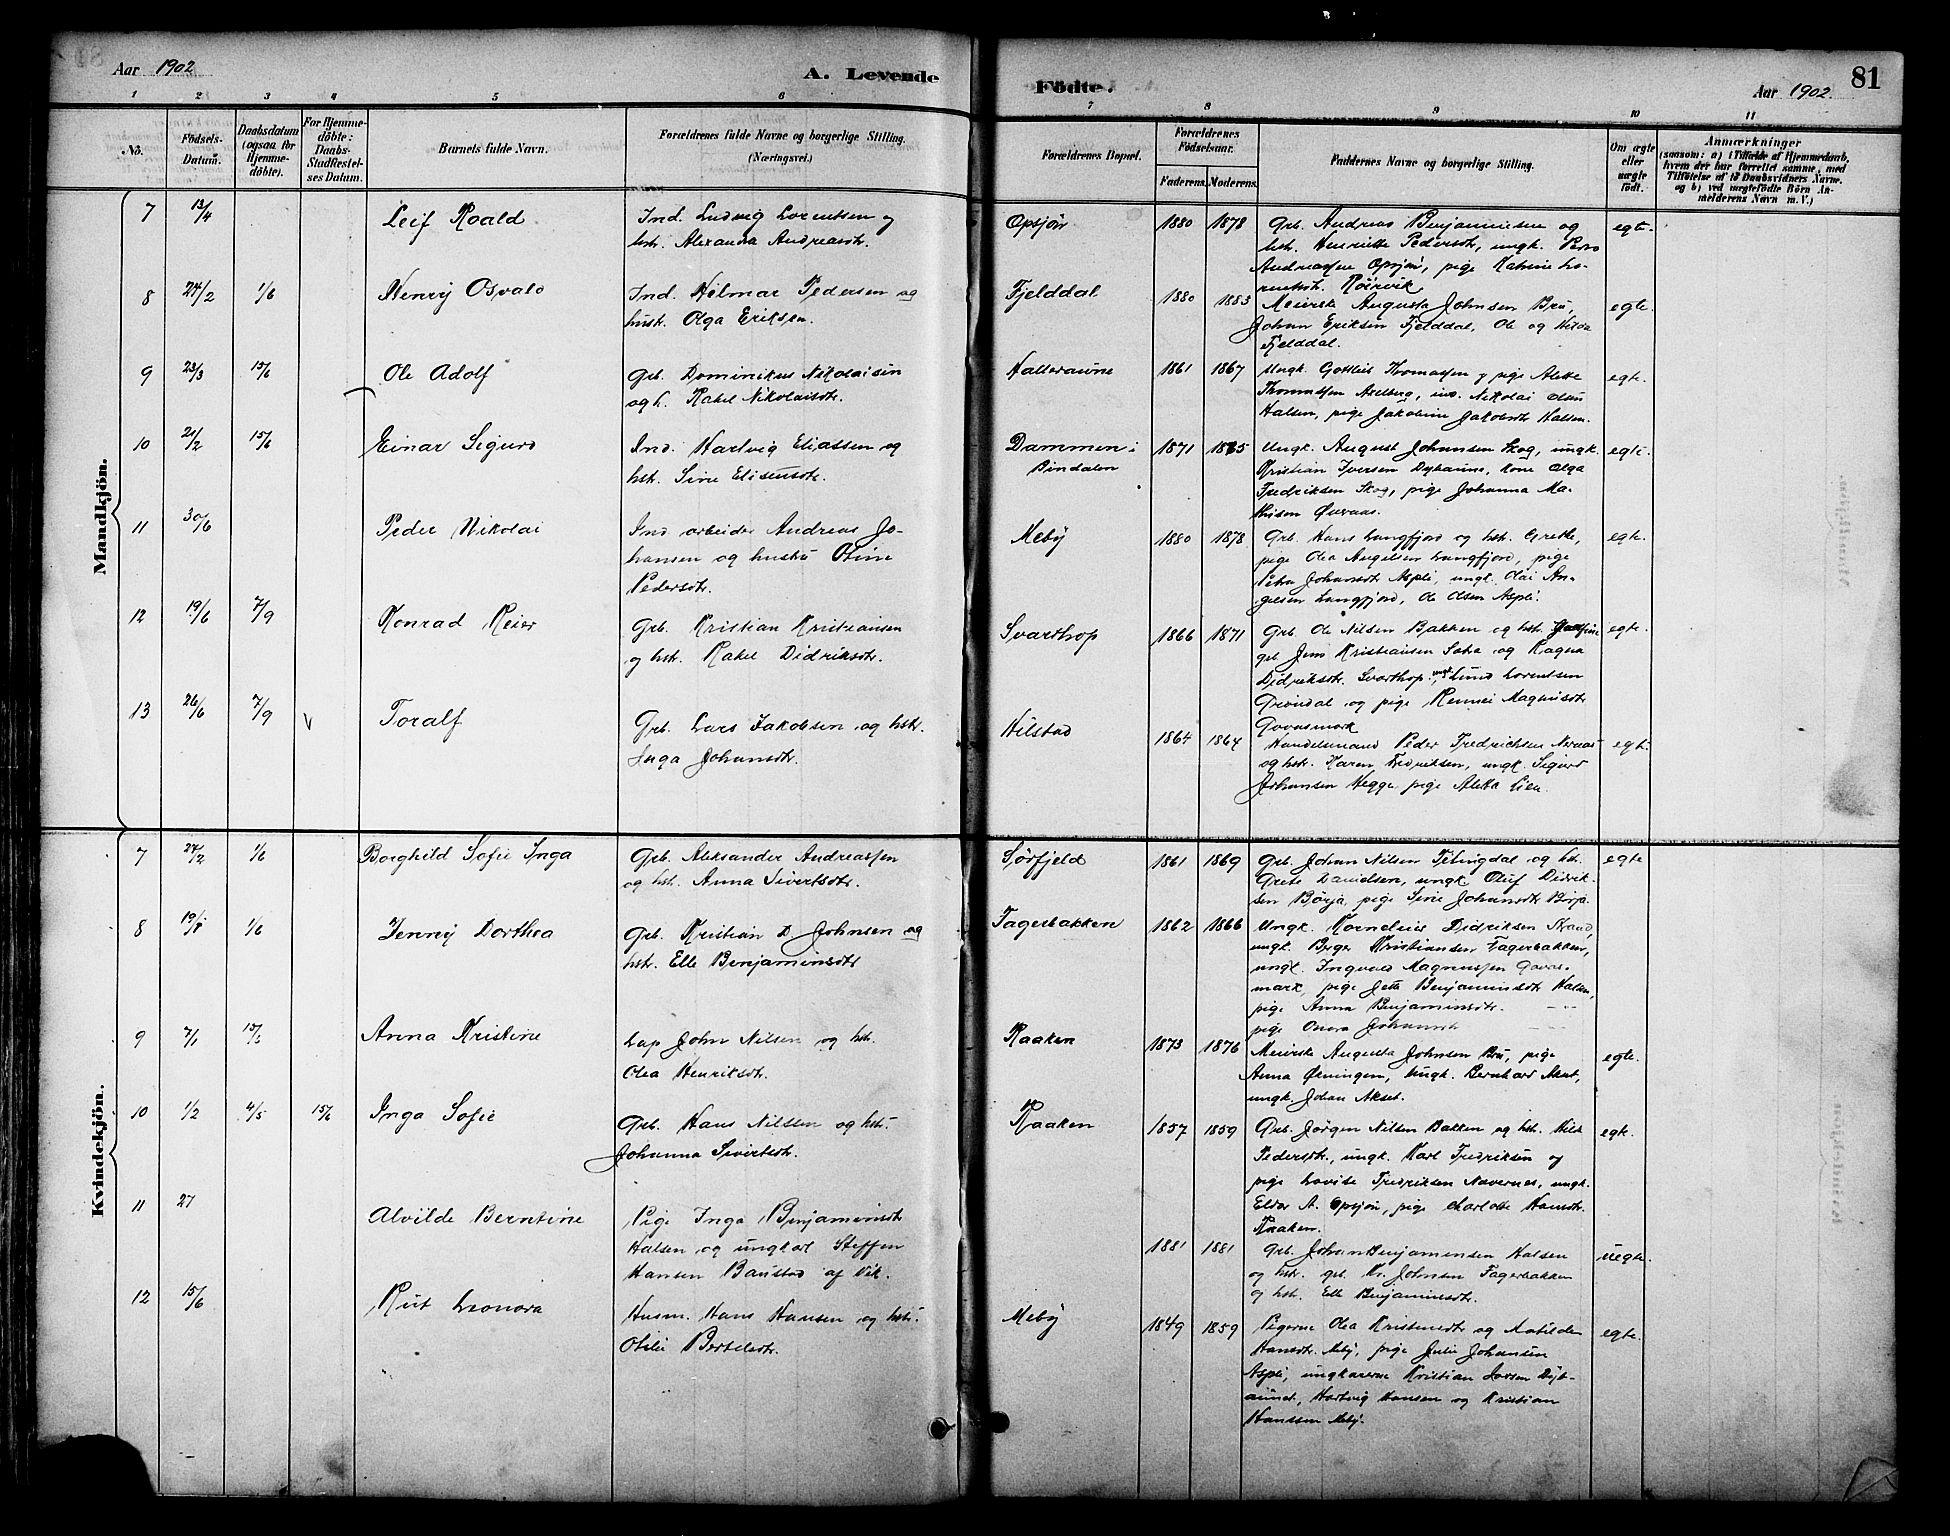 Aar 1902
A. Levende
Födte.
Aar 1902.
81
1 2 3 4 5 6 7 8 9 10 11
No.
Födsels-Datum.
Daabsdatum (ogsaa for Hjemmedöbte).
For Hjemmedöbte: Daabs-Stadfestelses Datum.
Barnets fulde Navn.
Forældrenes fulde Navne og borgerlige Stilling.
(Næringsvei.)
Forældrenes Bopæl.
Forældrenes Födselsaar.
Faderens. Moderens.
Faddernes Navne og borgerlige Stilling.
Om ægte eller uægte födt.
Anmærkninger
(saasom: a) i Tilfælde af Hjemmedaab,
hvem der har forrettet samme, med
Tilföielse af to Daabsvidners Navne,
og b) ved uægtefödte Börn An-
melderens Navn m. V.)
Mandkjön.
7 13/4 Leif Roald
Ind. Ludvig Lorentsen og
hst. Alexandra Andreasdtr.
Opsjön 1880 1878
Grb. Andreas Benjaminsen og
hst. Henriette Pedersdtr, ungk. Peder
Andreassen Opsjön, pige Katrine Lo-
rentsdtr. Röirvik
egte.
8 24/2 1/6 Henry Osvald
Ind. Hilmar Pedersen og
hust. Olga Eriksen.
Fjelddal 1880 1883
Meierske Augusta Johnsen Bru,
Johan Eriksen Fjelddal, Ole og Hilda
Fjelddal.
egte.
9 23/3 15/6 Ole Adolf
Grb. Dominikus Nikolaisen
og h. Rakel Nikolaisdtr.
Hallesaune 1861 1867
Ungk. Gottlieb Thomassen og pige Alette
Thomassen Axelberg, ind. Nikolai Olsen
Halsen, pige Jakobine Jakobsdtr Halsen.
egte.
10 21/2 15/6 Einar Sigurd
Ind. Hartvig Eliassen og
hst. Sine Elisensdtr.
Dammen i
Bindalen
1871 1865
Ungk. August Johansen Skog, ungk.
Kristian Iversen Dybaune, kone Olga
Fredriksen Skog, pige Johanna Ma-
thisen Øveraas.
egte.
11 30/6 Peder Nikolai
Ind arbeider Andreas Jo-
hansen og hustru Oline
Pedersdtr.
Meby 1880 1878
Grb. Hans Langfjord og hst. Grethe,
pige Olea Angelsen Langfjord, pige
Petra Johansdtr Aspli, ungk. Olai An-
gelsen Langfjord, Ole Olsen Aspli.
egte.
12 19/6 7/9 Konrad Reier
Grb. Kristian Kristiansen
og hst. Rakel Didriksdtr.
Svarthop 1866 1871
Grb. Ole Nilsen Bakken og hst.
grb Jens Kristiansen Sata og Ragna
Didriksdtr. Svarthop, ungk. Lund Lorentsen
Gröndal og pige Rennei Magnusdtr
Govasmark
egte.
13 26/6 7/9 Toralf
Grb. Lars Jakobsen og hst.
Inga Johansdtr.
Hilstad 1864 1864
Handelsmand Peder Fredrichsen Neraas
og hst. Karen Fredriksen, ungk. Sigurd
Johansen Hegge, pige Aletta Lien.
egt.
Kvindekjön.
7 24/2 1/6 Borghild Sofie Inga
Grb. Aleksander Andreassen
og hst. Anna Sivertsdtr.
Sörfjeld 1861 1869
Grb. Johan Nilsen Terningdal og hst.
Grete Danielsen, ungk Oluf Didrik-
sen Börja, pige Sine Johansdtr Börja.
egte
8 1/6 Jenny Dorthea
Grb. Kristian D Johnsen og
hst. Elle Benjaminsdtr
Fagerbakken 1862 1866
Ungk. Kornelius Didriksen Strand,
ungk. Berger Kristiansen Fagerbakken,
ungk. Ingvald Magnussen Govas-
mark, pige Jette Benjaminsdtr Halsen,
pige Anna Benjaminsdtr. - -
pige Onora Johansdtr - -
9 7/1 15/6 Anna Kristine
Lap John Nilsen og hst.
Olea Henriksdtr.
Raaken 1873 1876
Meierske Augusta Johnsen Bru, pige
Anna Økningen, Ungk. Bernhard Akset,
ungk. Johan Akset.
egte.
10 1/2 4/5 15/6 Inga Sofie
Grb. Hans Nilsen og hst.
Johanna Sivertsdtr.
Raaken 1857 1859
Grb. Jörgen Nilsen Bakken og hst.
Pedersdtr., ungk. Karl Fredriksen og
pige Lovise Fredriksen Navernes, ungk.
Eldor A. Opsjön, pige Charlotte Hansdtr.
Raaken.
egte.
11 27 Alvilde Berntine
Pige Inga Benjaminsdtr
Halsen og ungkarl Steffen
Hansen Baustad af Vik.
1881 1881
Grb. Johan Benjaminsen Halsen
og hst. grb. Kr. Johnsen Fagerbakken
og hst. Elle Benjaminsdtr.
uegte.
12 15/6 Rut Leonora
Husm. Hans Hansen og hst.
Otilie Bertelsdtr.
Meby 1849 1859
Pigerne Olea Kristensdtr og Matilde
Hansdtr. Meby, pige Julie Johansen
Aspli, ungkarerne Kristian Iversen Dyb-
aunet, Hartvig Hansen og Kristian
Hanssen Meby.
egte.